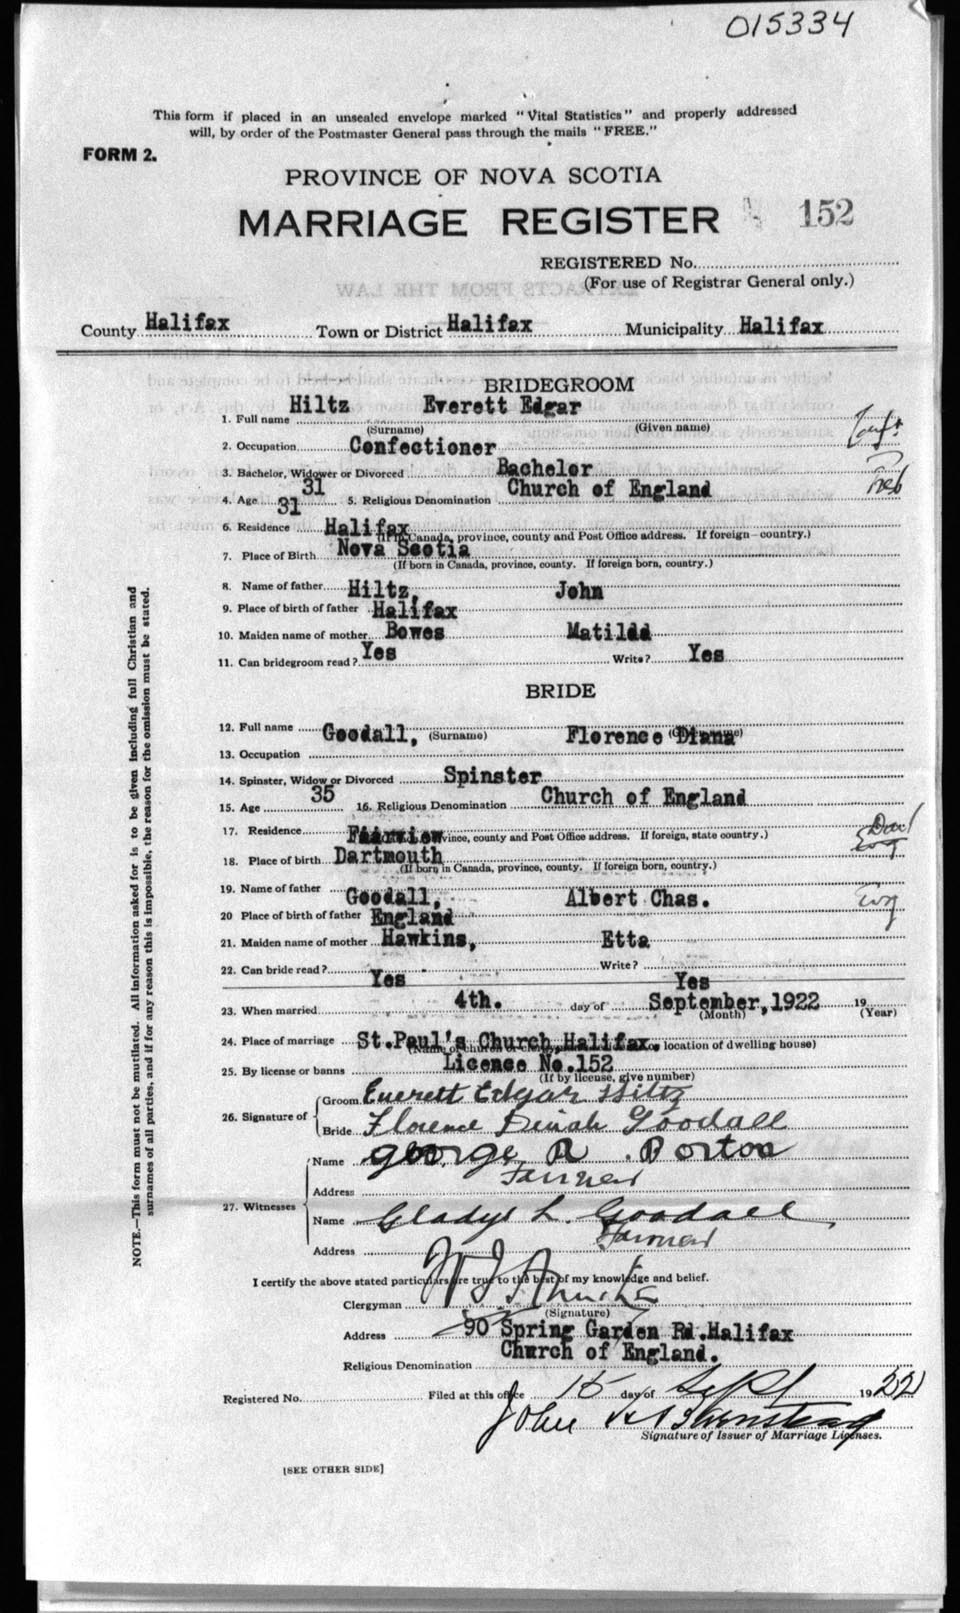 015334
This form if placed in an unsealed envelope marked "Vital Statistics" and properly addressed
will, by order of the Postmaster General pass through the mails "FREE."
FORM 2.
PROVINCE OF NOVA SCOTIA
MARRIAGE REGISTER 152
REGISTERED No.
(For use of Registrar General only.)
County Halifax Town or District Halifax Municipality Halifax
BRIDEGROOM
1. Full name Hiltz Everett Edgar
(Surname) (Given name)
2. Occupation Confectioner
3. Bachelor, Widower or Divorced Bachelor
4. Age 31 31 5. Religious Denomination Church of England
6. Residence Halifax
(If in Canada, province, county and Post Office address. If foreign—country.)
7. Place of Birth Nova Scotia
(If born in Canada, province, county. If foreign born, country.)
8. Name of father Hiltz, John
9. Place of birth of father Halifax
10. Maiden name of mother Bowes Matilda
11. Can bridegroom read? Yes Write? Yes
BRIDE
12. Full name Goodall, (Surname) Florence Diana
13. Occupation
14. Spinster, Widow or Divorced Spinster
15. Age 35 16. Religious Denomination Church of England
17. Residence Fairview province, county and Post Office address. If foreign, state country.)
18. Place of birth Dartmouth
(If born in Canada, province, county. If foreign born, country.)
19. Name of father Goodall, Albert Chas.
20 Place of birth of father England
Eng
21. Maiden name of mother Hawkins, Etta
22. Can bride read? Yes Write? Yes
23. When married 4th. day of September, 1922 19
(Month) (Year)
24. Place of marriage St.Paul's Church, Halifax. location of dwelling house)
25. By license or banns Licence No.152
(If by license, give number)
26. Signature of Groom Everett Edgar Hiltz
Bride Florence Dinah Goodall
27. Witnesses Name George R. Borton
Address
Name Gladys L. Goodall
Address
I certify the above stated particulars are true to the best of my knowledge and belief.
Clergyman
(Signature)
Address 90 Spring Garden Rd.Halifax
Religious Denomination Church of England.
Registered No. Filed at this office 15 day of Sept 1922
John
Signature of Issuer of Marriage Licenses.
[SEE OTHER SIDE]
NOTE.—This form must not be mutilated. All information asked for is to be given including full Christian and
surnames of all parties, and if for any reason this is impossible, the reason for the omission must be stated.